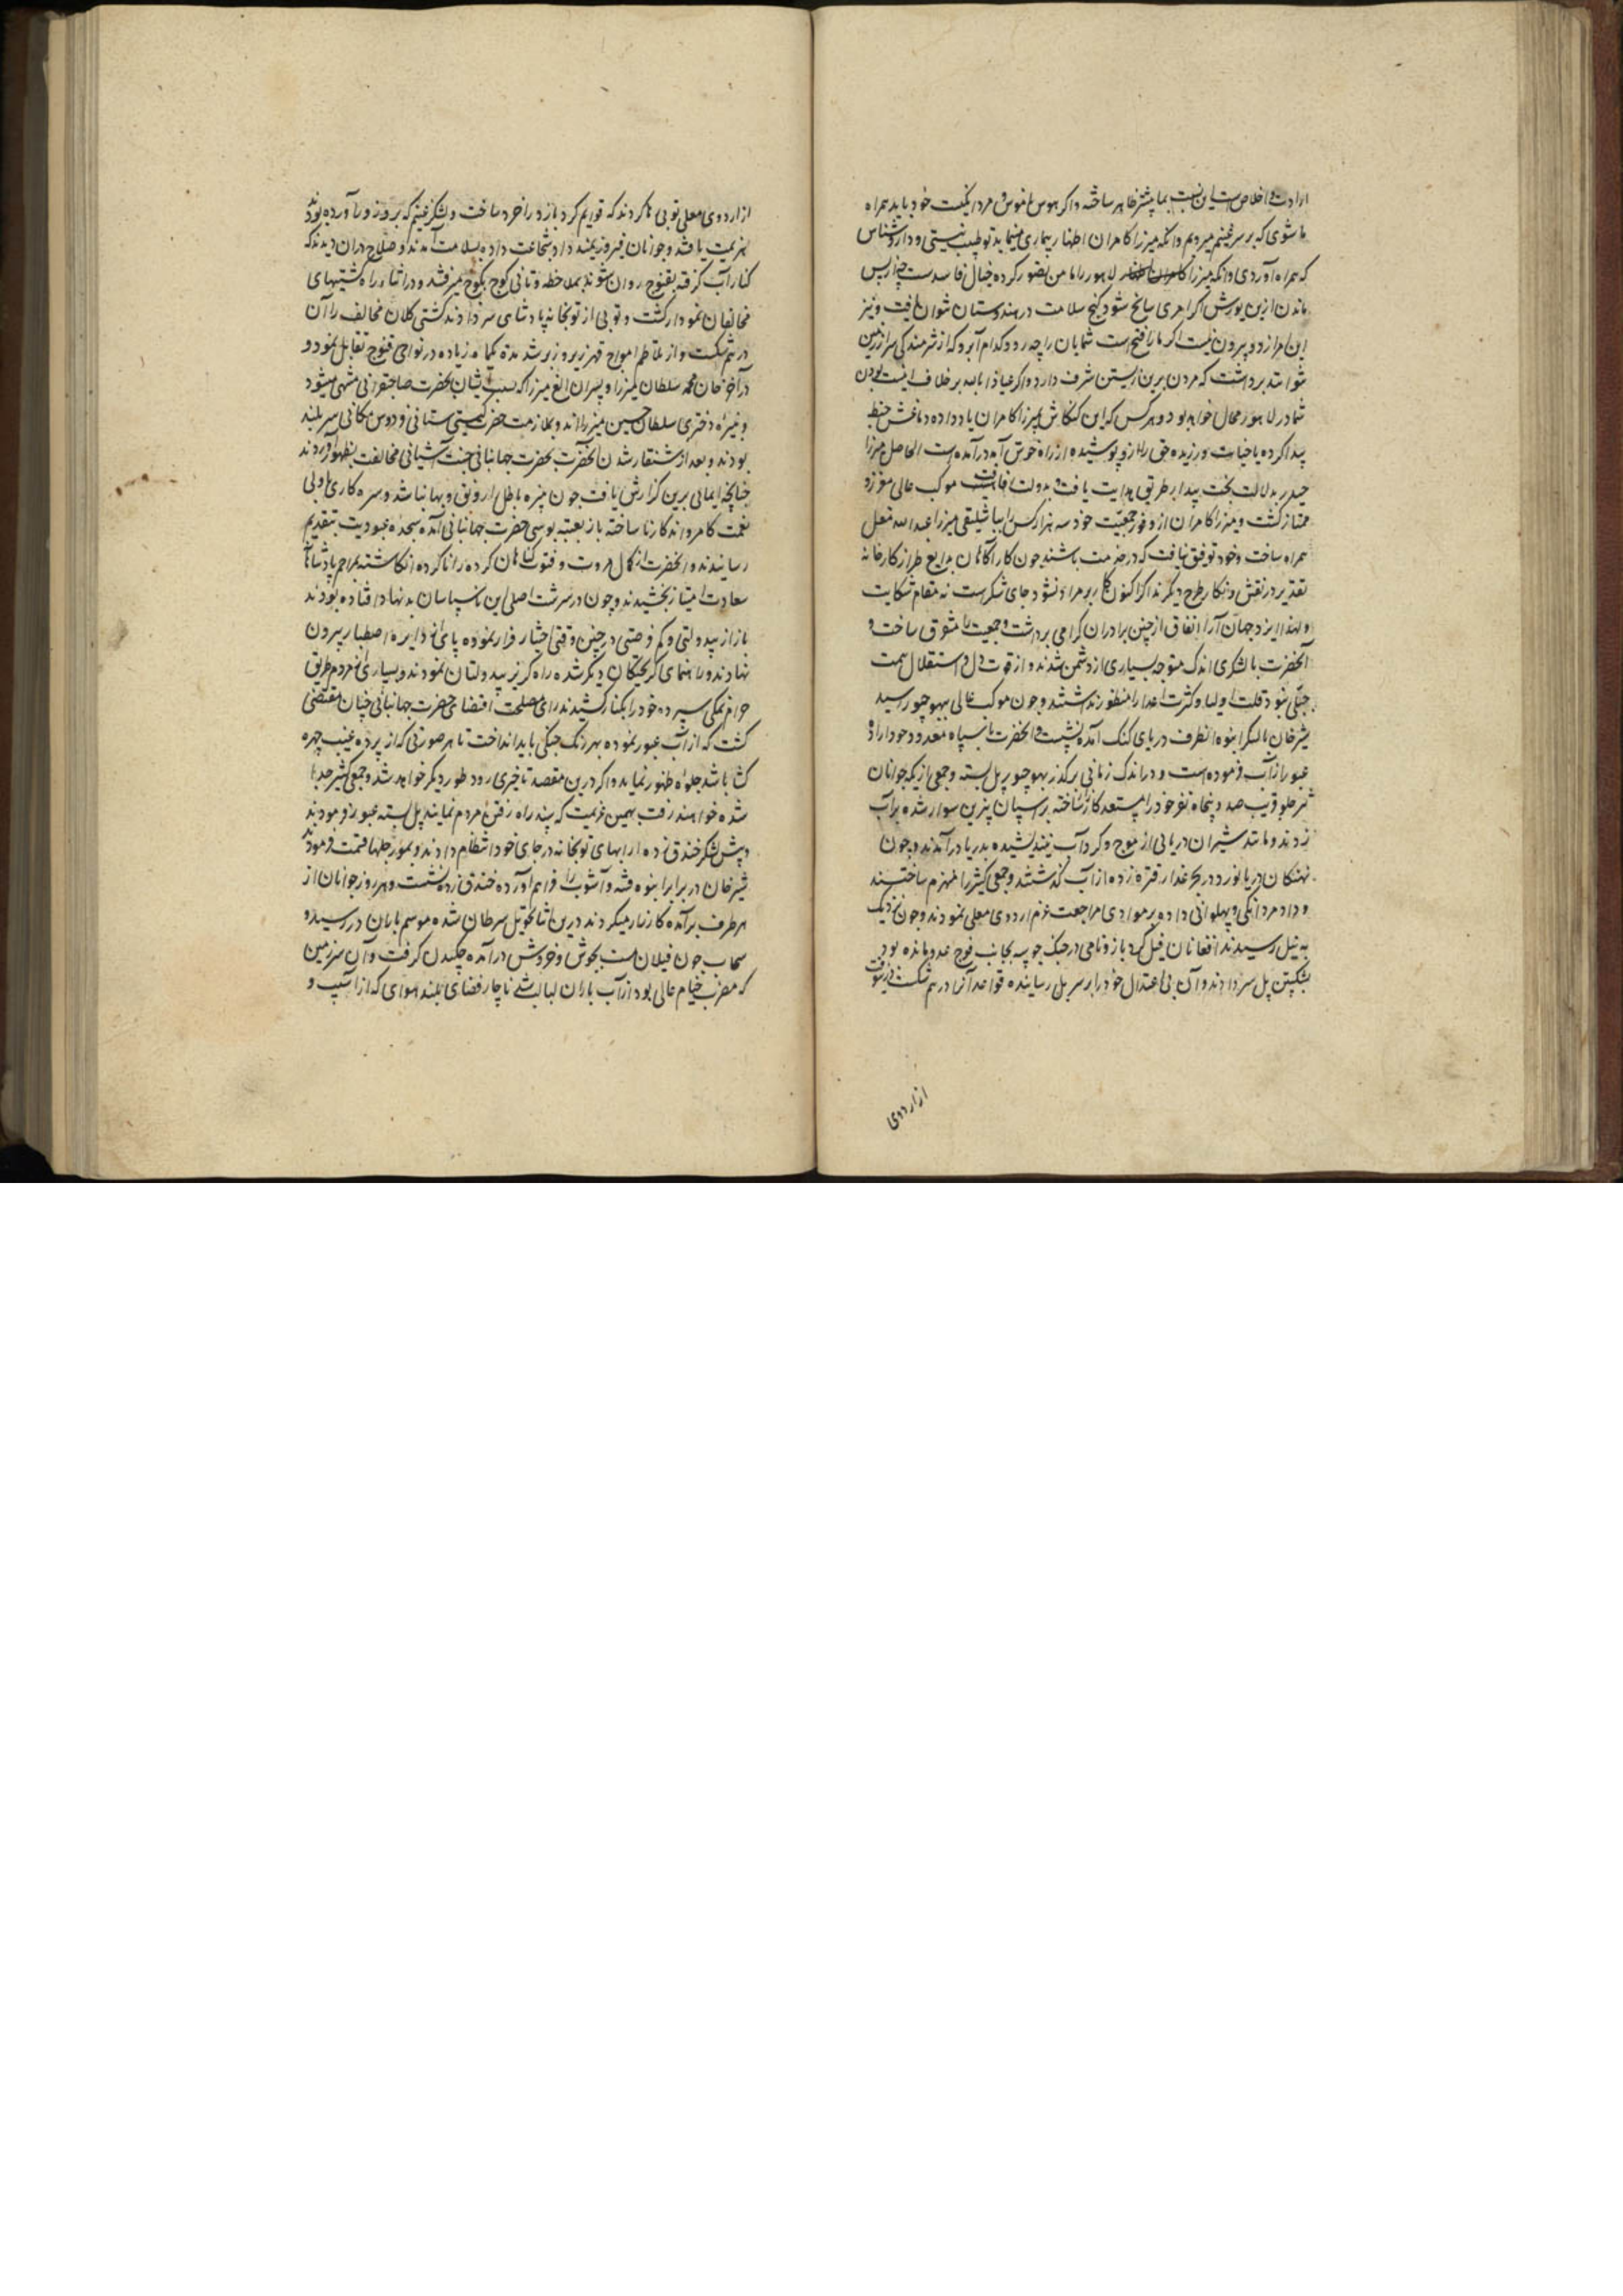 ارادت و اخلاص است این نسبت بما پیشتر ظاهر ساخته و اگر هوس ناموس و مردانگیت خود باید همراه
ما شوی که بر سر غنیم میرویم و آنکه میرزا کامران اظهار بیماری مینماید تو طبیب نیستی و داروشناس
که همراه آوردی و آنکه میرزا کامران لاهور را مامن تصور کرده خیال فاسدست چرا که پس
ماندن ازین یورش اگر امری سانح شود کنج سلامت در هندوستان نتوان یافت و نیز
این امر از دو بیرون نیست اگر ما را فتح است شمایان را چه رو و کدام آبرو که از شرمندگی سر از زمین
نتوانید برداشت که مردن برین زیستن شرف دارد و اگر عیاذا بالله بر خلاف اینست بودن
شما در لاهور محال خواهد بود و هر کس که این کنکاش بمیرزا کامران یاد داده دماغش خبط
پیدا کرده یا خیانت ورزیده حق را ازو پوشیده از راه خوش آید درآمده است الحاصل میرزا
حیدر بدلالت بخت بیدار طریق هدایت یافت و بدولت موکب عالی معزز و
ممتاز گشت و میرزا کامران از وفور جمعیت خود سه هزار کس را بباشلیقی میرزا عبدالله مغل
همراه ساخت و خود توفیق نیافت که در خدمت باشد چون کارآگاهان بدایع طراز کارخانه
تقدیر در نقش و نگار طرح دیگرند اگر اکنون کار بر مراد نشود جای شکرست نه مقام شکایت
و لهذا ایزد جهان آرا اتفاق از چنین برادران گرامی برداشت و جمعیت را متفرق ساخت و
آنحضرت با لشکری اندک متوجه بسیاری از دشمن شدند و از قوت دل و استقلال همت
جبلی خود قلت اولیا و کثرت اعدا را منظور نداشتند و چون موکب عالی ببهوجپور رسید
شیرخان با لشکر انبوه آنطرف دریای گنگ آمده نشست و آنحضرت با سپاه معدود خود اراده
عبور از آب فرموده است و در اندک زمانی بر گذر بهوجپور پل بسته و جمعی از یکه جوانان
تیز جلو قریب صد و پنجاه نفر خود را مستعد کار ساخته بر اسپان بی زین سوار شده بر آب
زدند و مانند شیران دریائی از موج و گرداب نیندیشیده بدریا درآمدند و چون
نهنگان دریانورد در بحر غدار از آب گذشتند و جمعی کثیر را منهزم ساختند
و داد مردانگی و پهلوانی داده مراجعت عزم اردوی معلی نمودند و چون نزدیک
به پل رسیدند افغانان فیل گرد بازو نامی در جنگ چوسه بجانب فوج عدو مانده بود
بشکستن پل سر دادند و آن بی اعتدال خود را بر سر پل رسانیده قواعد آنرا در هم شکست درینوقت
از اردوی
از اردوی معلی توپی رها کردند که قوایم گرد بازو را خرد ساخت و لشکر غنیم که بروز ورآورده بودند
هزیمت یافتند و جوانان فیروزمند داد شجاعت داده بسلامت آمدند و صلاح دران دیدند که
کنار آب گرفته بقنوج روان شوند بملاحظه و تانی کوچ بکوچ میرفتند و در اثناء راه کشتیهای
مخالفان نمودار گشت و توپی از توپخانه پادشاهی سر دادند کشتی کلان مخالف را آن
در هم شکست و از تلاطم امواج قهر زیر و زبر شد مدة یکماه زیاده در نواحی قنوج تقابل نمود و
درآخر خان محمد سلطان میرزا و پسران الغ میرزا که نسب ایشان بحضرت صاحبقرانی منتهی میشود
و نبیره دختری سلطان حسین میرزااند و بملازمت حضرت گیتی ستانی فردوس مکانی سربلند
بودند و بعد از شنقار شدن آنحضرت بحضرت جهانبانی جنت آشیانی مخالفت بظهور آوردند
چنانچه ایمائی برین گزارش یافت چون بهره باطل را رونق و بها نباشد و سره کار بی ولی
نعمت کامروا نه کار ناساخته باز بعتبه بوسی حضرت جهانبانی آمده سجده عبودیت بتقدیم
رسانیدند و آنحضرت از کمال مروت و فتوت گناهان کرده را ناکرده انگاشته بمراحم پادشاهانه
سعادت امتیاز بخشیدند و چون در سرشت اصلی این ناسپاسان بدنهاد افتاده بودند
باز از بیدولتی و کم فرصتی در چنین وقتی اختیار فرار نموده پای از دایره اصطبار بیرون
نهادند و راهنمای گریختگان دیگر شده راه گریز ببیدولتان نمودند و بسیاری از مردم طریق
حرام نمکی سپرده خود را بکنار کشیدند رای مصلحت اقتضای حضرت جهانبانی چنان مقتضی
گشت که از آب عبور نموده بهر رنگ جنگی باید انداخت تا هر صورتی که از پرده غیب چهره
گشا باشد جلوه ظهور نماید و اگر درین مقصد تاخیری رود طور دیگر خواهد شد و جمعی کثیر جدا
شده خواهند رفت بهمین عزیمت که بند راه رفتن مردم نمایند پل بسته عبور فرمودند
و پیش لشکر خندق زده ارابهای توپخانه در جای خود انتظام دادند و مورچلها قسمت فرمودند
شیرخان در برابر انبوه فتنه و آشوب را فراهم آورده خندق زده نشست و هر روز جوانان از
هر طرف برآمده کارزار میکردند درین اثنا تحویل سرطان شده موسم باران در رسید و
سحاب چون فیلان مست بجوش و خروش درآمده چکیدن گرفت و آن سرزمین
که مضرب خیام عالی بود از آب باران لبالب شد ناچار فضای بلند هوای که از آسیب و